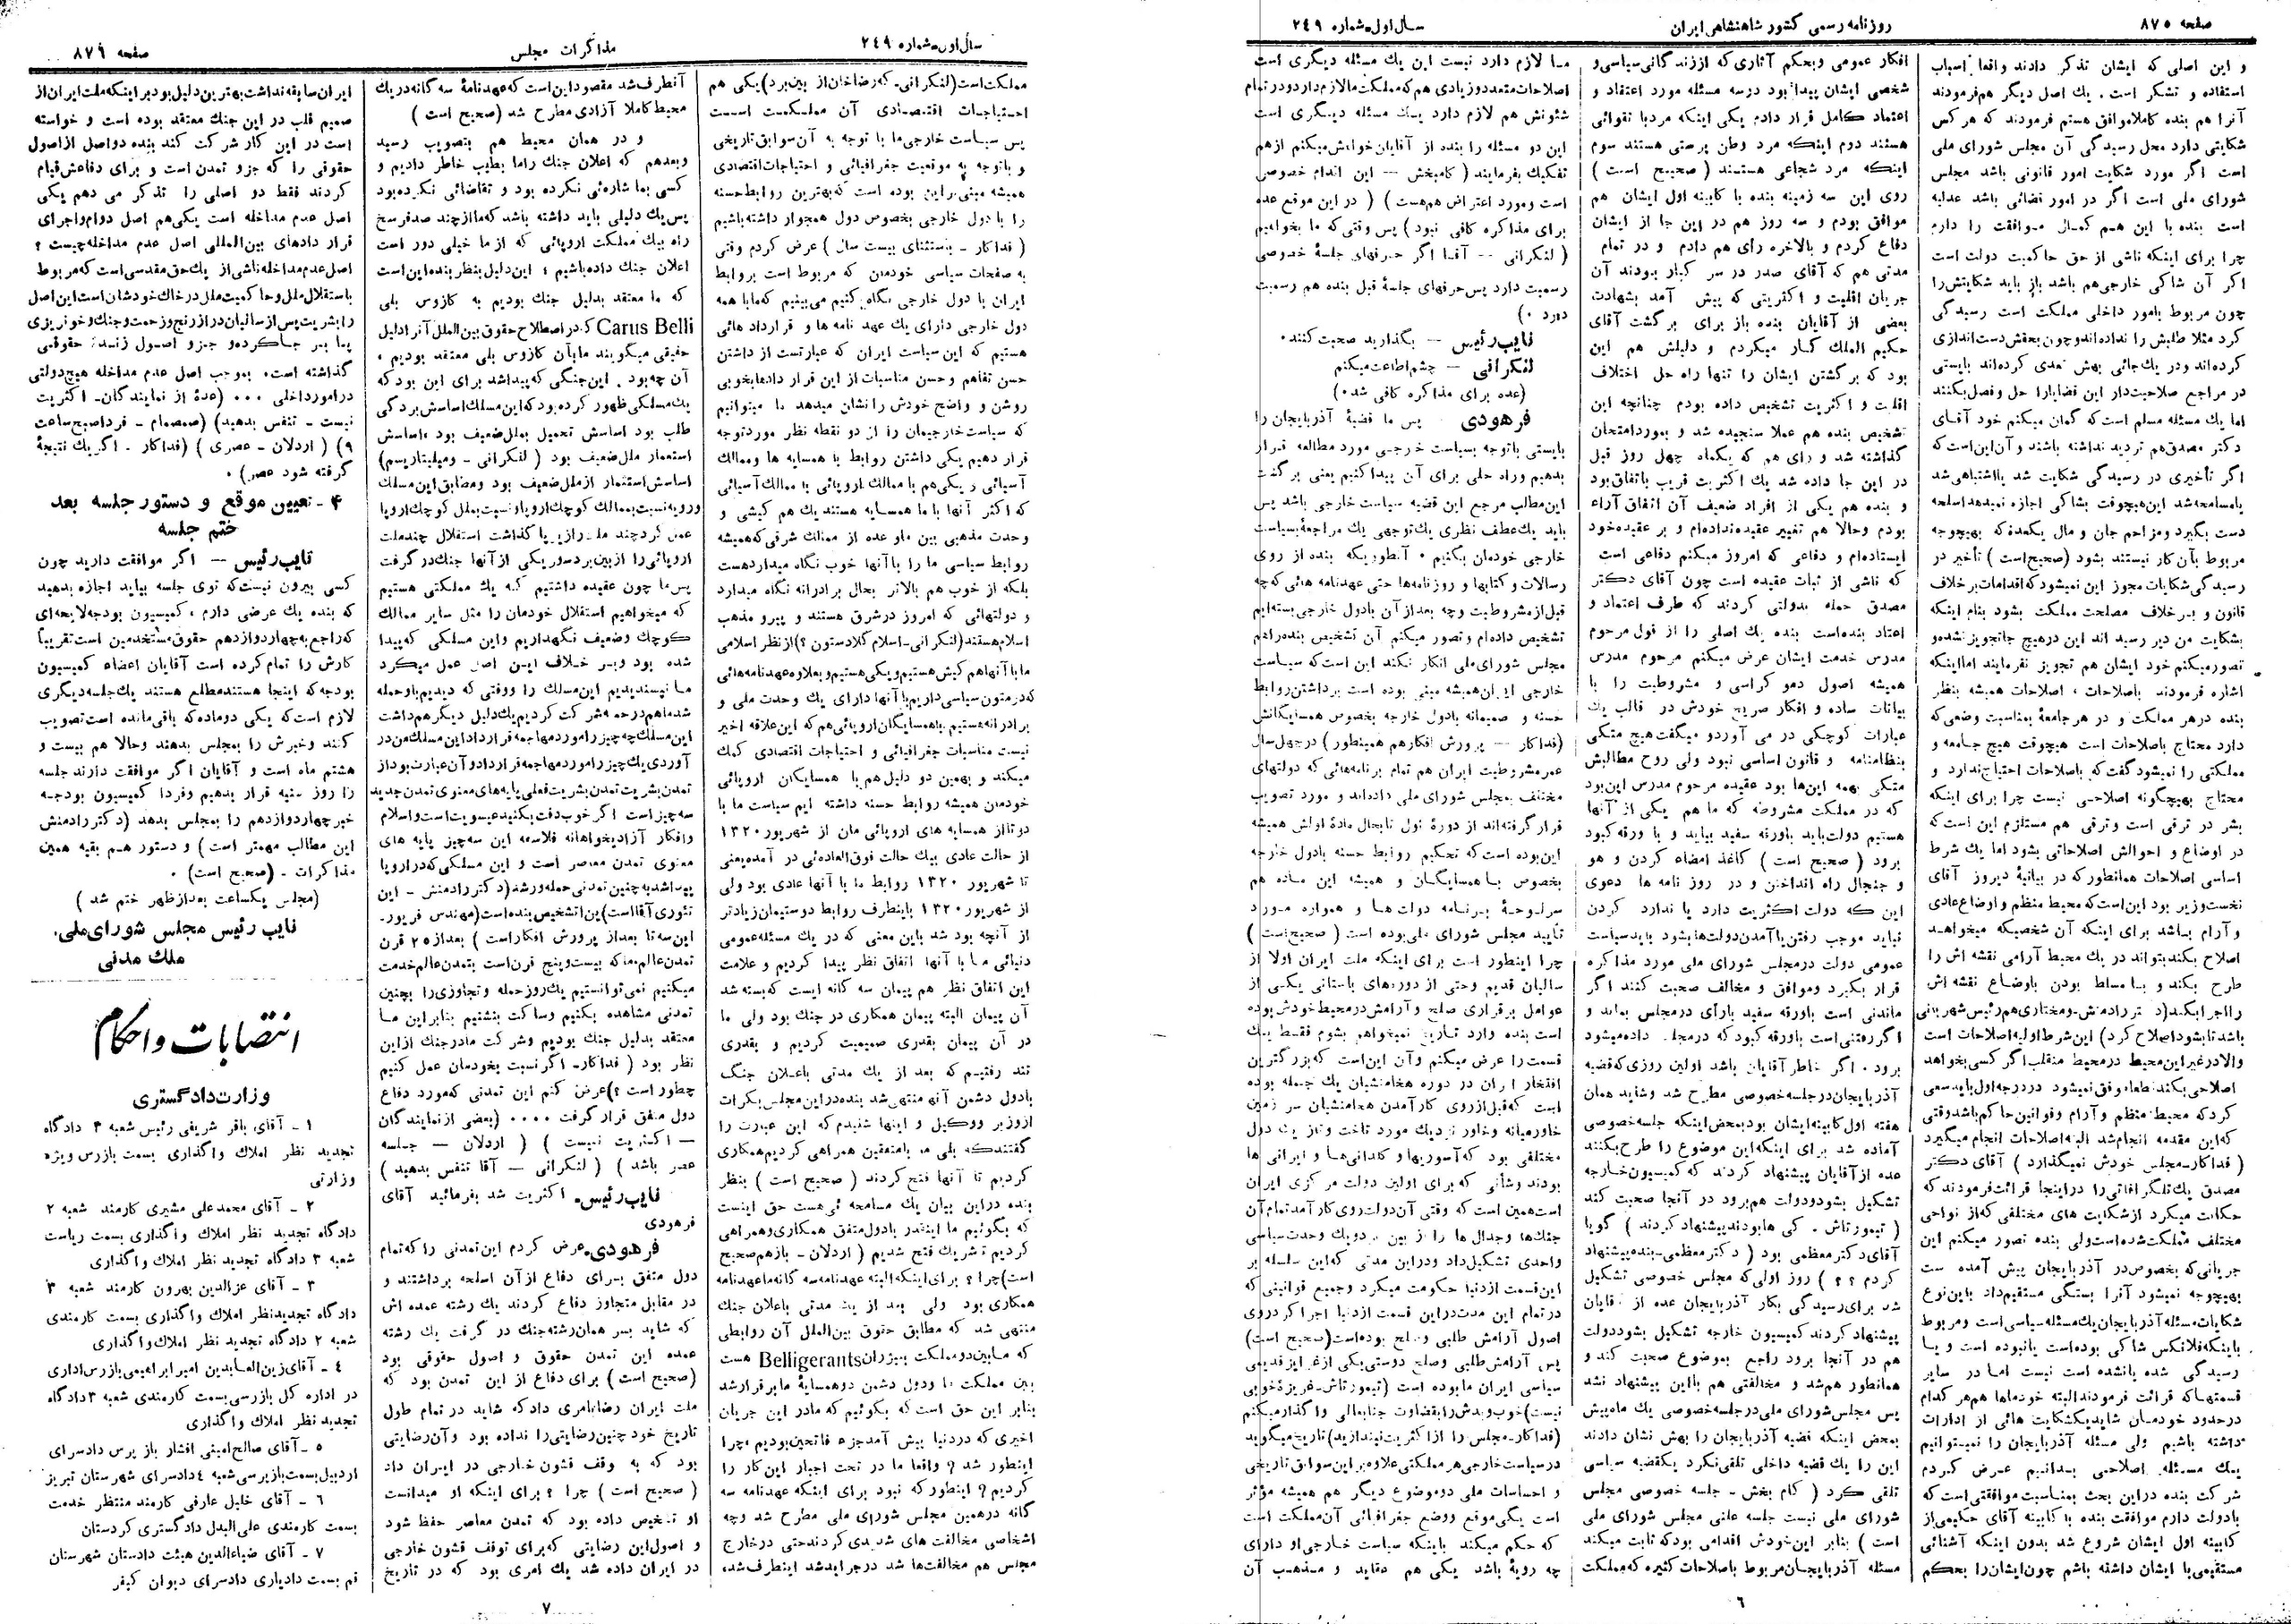 صفحه ۸۷۵
روزنامه رسمی کشور شاهنشاهی ایران
سال اول-شماره ۲۴۹
و این اصلی که ایشان تذکر دادند واقعا اسباب
استفاده و تشکر است . یك اصل دیگر هم فرمودند
آنرا هم بنده کاملا موافق هستم فرمودند که هر کس
شکایتی دارد محل رسیدگی آن مجلس شورای ملی
است اگر مورد شکایت امور قانونی باشد مجلس
شورای ملی است اگر در امور قضائی باشد عدلیه
است بنده با این هم کمال موافقت را دارم
چرا برای اینکه ناشی از حق حاکمیت دولت است
اگر آن شاکی خارجی هم باشد باز باید شکایتش را
چون مربوط بامور داخلی مملکت است رسیدگی
کرد مثلا طلبش را نداده اند و چون بحقش دست اندازی
کرده اند و در یك جائی بهش تعدی کرده اند بایستی
در مراجع صلاحیت دار این قضایا را حل و فصل بکنند
اما یك مسئله مسلم است که گمان میکنم خود آقای
دکتر مصدق هم تردید نداشته باشند و آن این است که
اگر تأخیری در رسیدگی شکایت شد یا اشتباهی شد
یا مسامحه شد این هیچوقت بشاکی اجازه نمیدهد اسلحه
دست بگیرد و مزاحم جان و مال یکعده که بهیچوجه
مربوط بآن کار نیستند بشود (صحیح است) تأخیر در
رسیدگی شکایات مجوز این نمیشود که اقدامات بر خلاف
قانون و بر خلاف مصلحت مملکت بشود بنام اینکه
بشکایت من دیر رسیده اند این در هیچ جا تجویز نشده و
تصور میکنم خود ایشان هم تجویز نفرمایند اما اینکه
اشاره فرمودند باصلاحات ، اصلاحات همیشه بنظر
بنده در هر مملکت و در هر جامعهٔ بمناسبت وضعی که
دارد محتاج باصلاحات است هیچوقت هیچ جامعه و
مملکتی را نمیشود گفت که باصلاحات احتیاج ندارد و
محتاج بهیچگونه اصلاحی نیست چرا برای اینکه
بشر در ترقی است و ترقی هم مستلزم این است که
در اوضاع و احوالش اصلاحاتی بشود اما یك شرط
اساسی اصلاحات همانطور که در بیانیهٔ دیروز آقای
نخست وزیر بود این است که محیط منظم و اوضاع عادی
و آرام باشد برای اینکه آن شخصیکه میخواهد
اصلاح بکند بتواند در یك محیط آرامی نقشه اش را
طرح بکند و با مسلط بودن باوضاع نقشه اش
را اجرا بکند (دکتر رادمنش-و مختاری هم رئیس شهربانی
باشد تا بشود اصلاح کرد) این شرط اولیه اصلاحات است
والا در غیر این محیط در محیط منقلب اگر کسی بخواهد
اصلاحی بکند قطعا موفق نمیشود در درجه اول باید سعی
کرد که محیط منظم و آرام و قوانین حاکم باشد وقتی
که این مقدمه انجام شد البته اصلاحات انجام میگیرد
( فداکار-مجلس خودش نمیگذارد ) آقای دکتر
مصدق یك تلگرافاتی را در اینجا قرائت فرمودند که
حکایت میکرد از شکایت های مختلفی که از نواحی
مختلف مملکت شده است ولی بنده تصور میکنم این
جریانی که بخصوص در آذربایجان پیش آمده است
بهیچوجه نمیشود آنرا بستگی مستقیم داد باین نوع
شکایات مسئله آذربایجان یك مسئله سیاسی است و مربوط
باینکه فلانکس شاکی بوده است یا نبوده است و یا
رسیدگی شده یا نشده است نیست اما در سایر
قسمتها که قرائت فرمودند البته خود ماها هم هر کدام
در حدود خودمان شاید یکشکایت هائی از ادارات
داشته باشیم ولی مسئله آذربایجان را نمیتوانیم
یك مسئله اصلاحی بدانیم عرض کردم
شرکت بنده در این بحث بمناسبت موافقتی است که
با دولت دارم موافقت بنده با کابینه آقای حکیمی از
کابینه اول ایشان شروع شد بدون اینکه آشنائی
مستقیمی با ایشان داشته باشم چون ایشان را بحکم
افکار عمومی و بحکم آثاری که از زندگانی سیاسی و
شخصی ایشان پیدا بود در سه مسئله مورد اعتقاد و
اعتماد کامل قرار دادم یکی اینکه مرد با تقوائی
هستند دوم اینکه مرد وطن پرستی هستند سوم
اینکه مرد شجاعی هستند ( صحیح است )
روی این سه زمینه بنده با کابینه اول ایشان هم
موافق بودم و سه روز هم در این جا از ایشان
دفاع کردم و بالاخره رأی هم دادم و در تمام
مدتی هم که آقای صدر در سر کار بودند آن
جریان اقلیت و اکثریتی که پیش آمد بشهادت
بعضی از آقایان بنده باز برای برگشت آقای
حکیم الملك کار میکردم و دلیلش هم این
بود که برگشتن ایشان را تنها راه حل اختلاف
اقلیت و اکثریت تشخیص داده بودم چنانچه این
تشخیص بنده هم عملا سنجیده شد و بمورد امتحان
گذاشته شد و رای هم که یکماه چهل روز قبل
در این جا داده شد یك اکثریت قریب باتفاق بود
و بنده هم یکی از افراد ضعیف آن اتفاق آراء
بودم و حالا هم تغییر عقیده نداده ام و بر عقیده خود
ایستاده ام و دفاعی که امروز میکنم دفاعی است
که ناشی از ثبات عقیده است چون آقای دکتر
مصدق حمله بدولتی کردند که طرف اعتماد و
اعتاد بنده است بنده یك اصلی را از قول مرحوم
مدرس خدمت ایشان عرض میکنم مرحوم مدرس
همیشه اصول دموکراسی و مشروطیت را با
بیانات ساده و افکار صریح خودش در قالب یك
عبارات کوچکی در می آورد و میگفت هیچ متکی
بنظامنامه و قانون اساسی نبود ولی روح مطالبش
متکی بهمه اینها بود عقیده مرحوم مدرس این بود
که در مملکت مشروطه که ما هم یکی از آنها
هستیم دولت باید باورقه سفید بیاید و با ورقه کبود
برود ( صحیح است ) کاغذ امضاء کردن و هو
و جنجال راه انداختن و در روز نامه ها دعوی
این که دولت اکثریت دارد یا ندارد کردن
نباید موجب رفتن یا آمدن دولت ها بشود باید سیاست
عمومی دولت در مجلس شورای ملی مورد مذاکره
قرار بگیرد و موافق و مخالف صحبت کنند اگر
ماندنی است باورقه سفید با رأی در مجلس بماند و
اگر رفتنی است باورقه کبود که در مجلس داده میشود
برود . اگر خاطر آقایان باشد اولین روزی که قضیه
آذربایجان در جلسه خصوصی مطرح شد و شاید همان
هفته اول کابینه ایشان بود بمحض اینکه جلسه خصوصی
آماده شد برای اینکه این موضوع را طرح بکنند
عده از آقایان پیشنهاد کردند که کمیسیون خارجه
تشکیل بشود و دولت هم برود در آنجا صحبت کند
( تیمورتاش . کی ها بودند پیشنهاد کردند ) گویا
آقای دکتر معظمی بود ( دکتر معظمی-بنده پیشنهاد
کردم ؟ ؟ ) روز اولی که مجلس خصوصی تشکیل
شد برای رسیدگی بکار آذربایجان عده از آقایان
پیشنهاد کردند کمیسیون خارجه تشکیل بشود دولت
هم در آنجا برود راجع بموضوع صحبت کند و
همانطور هم شد و مخالفتی هم با این پیشنهاد نشد
پس مجلس شورای ملی در جلسه خصوصی یك ماه پیش
بمحض اینکه قضیه آذربایجان را بهش نشان دادند
این را یك قضیه داخلی تلقی نکرد یکقضیه سیاسی
تلقی کرد ( کام بخش - جلسه خصوصی مجلس
شورای ملی نیست جلسه علنی مجلس شورای ملی
است ) بنابر این خودش اقدامی بود که ثابت میکند
مسئله آذربایجان مربوط باصلاحات کثیره که مملکت
ما لازم دارد نیست این یك مسئله دیگری است
اصلاحات متعدد و زیادی هم که مملکت ما لازم دارد و در تمام
شئونش هم لازم دارد یك مسئله دیگری است
این دو مسئله را بنده از آقایان خواهش میکنم از هم
تفکیك بفرمایند ( کامبخش — این اقدام خصوصی
است و مورد اعتراض هم هست ) ( در این موقع عده
برای مذاکره کافی نبود ) پس وقتی که ما بخواهیم
( لنکرانی -- آقا اگر حرفهای جلسهٔ خصوصی
رسمیت دارد پس حرفهای جلسهٔ قبل بنده هم رسمیت
دارد .)
نایب رئیس — بگذارید صحبت کنند .
لنکرانی — چشم اطاعت میکنم
(عده برای مذاکره کافی شد .)
فرهودی پس ما قضیهٔ آذربایجان را
بایستی باتوجه بسیاست خارجی مورد مطالعه قرار
بدهیم و راه حلی برای آن پیدا کنیم یعنی برگشت
این مطالب مرجع این قضیه سیاست خارجی باشد پس
باید یك عطف نظری یك توجهی یك مراجعهٔ بسیاست
خارجی خودمان بکنیم . آنطوریکه بنده از روی
رسالات و کتابها و روزنامه ها حتی عهدنامه هائی که چه
قبل از مشروطیت و چه بعد از آن با دول خارجی بسته ایم
تشخیص داده ام و تصور میکنم آن تشخیص بنده را هم
مجلس شورای ملی انکار نکند این است که سیاست
خارجی ایران همیشه مبنی بوده است بر داشتن روابط
حسنه و صمیمانه با دول خارجه بخصوص همسایگانش
(فداکار — پرورش افکارهم همینطور) در چهل سال
عمر مشروطیت ایران هم تمام برنامه هائی که دولتهای
مختلف بمجلس شورای ملی داده اند و مورد تصویب
قرار گرفته اند از دورهٔ اول تا بحال مادهٔ اولش همیشه
این بوده است که تحکیم روابط حسنه با دول خارجه
بخصوص با همسایگان و همیشه این ماده هم
سرلوحهٔ برنامه دولت ها و همواره مورد
تأیید مجلس شورای ملی بوده است ( صحیح است )
چرا اینطور است برای اینکه ملت ایران اولا از
سالیان قدیم و حتی از دوره های باستانی یکی از
عوامل برقراری صلح و آرامش در محیط خودش بوده
است بنده وارد تاریخ نمیخواهم بشوم فقط یك
قسمت را عرض میکنم و آن این است که بزرگترین
افتخار ایران در دوره هخامنشیان یك جمله بوده
است که قبل از روی کار آمدن هخامنشیان سر زمین
خاورمیانه و خاور نزدیك مورد تاخت و تاز یك دول
مختلفی بود که آسوریها و کلدانی ها و ایرانی ها
بودند و شأنی که برای اولین دولت مرکزی ایران
است همین است که وقتی آن دولت روی کار آمد تمام آن
جنك ها و جدال ها را از بین برد و یك وحدت سیاسی
واحدی تشکیل داد و در این مدتی که این سلسله بر
این قسمت از دنیا حکومت میکرد و جمیع قوانینی که
در تمام این مدت در این قسمت از دنیا اجرا کرد روی
اصول آرامش طلبی و صلح بوده است (صحیح است)
پس آرامش طلبی و صلح دوستی یکی از غرایز قدیمی
سیاسی ایران ما بوده است (تیمورتاش-غریزهٔ خوبی
نیست) خوب و بدش را بقضاوت جنابعالی واگذار میکنم
(فداکار-مجلس را از اکثریت نیندازید) تاریخ میگوید
در سیاست خارجی هر مملکتی علاوه بر این سوابق تاریخی
و احساسات ملی دو موضوع دیگر هم همیشه مؤثر
است یکی موقع و وضع جغرافیائی آن مملکت است
که حکم میکند باینکه سیاست خارجی او دارای
چه رویهٔ باشد یکی هم عقاید و مذهب آن
٦
سال اول-شماره ۲۴۹
مذاکرات مجلس
صفحه ۸۷۶
مملکت است (لنکرانی-که رضاخان از بین برد) یکی هم
احتیاجات اقتصادی آن مملکت است
پس سیاست خارجی ما با توجه به آن سوابق تاریخی
و باتوجه به موقعیت جغرافیائی و احتیاجات اقتصادی
همیشه مبنی بر این بوده است که بهترین روابط حسنه
را با دول خارجی بخصوص دول همجوار داشته باشیم
( فداکار - باستثنای بیست سال ) عرض کردم وقتی
به صفحات سیاسی خودمان که مربوط است بروابط
ایران با دول خارجی نگاه کنیم می بینیم که ما با همه
دول خارجی دارای یك عهد نامه ها و قرارداد هائی
هستیم که این سیاست ایران که عبارتست از داشتن
حسن تفاهم و حسن مناسبات از این قرار دادها بخوبی
روشن و واضح خودش را نشان میدهد ما میتوانیم
که سیاست خارجیمان را از دو نقطه نظر مورد توجه
قرار دهیم یکی داشتن روابط با همسایه ها و ممالك
آسیائی و یکی هم با ممالك اروپائی با ممالك آسیائی
که اکثر آنها با ما همسایه هستند یك هم کیشی و
وحدت مذهبی بین ما و عده از ممالك شرقی که همیشه
روابط سیاسی ما را با آنها خوب نگاه میدارد هست
بلکه از خوب هم بالاتر بحال برادرانه نگاه میدارد
و دولتهائی که امروز در شرق هستند و پیرو مذهب
اسلام هستند (لنکرانی-اسلام کلادستون ؟) از نظر اسلامی
ما با آنها هم کیش هستیم و یکی هستیم و بعلاوه عهدنامه هائی
که در متون سیاسی داریم با آنها دارای یك وحدت ملی و
برادرانه هستیم با همسایگان اروپائی هم که این علاقه اخیر
نیست مناسبات جغرافیائی و احتیاجات اقتصادی کمك
میکند و بهمین دو دلیل هم با همسایگان اروپائی
خودمان همیشه روابط حسنه داشته ایم سیاست ما با
دو تا از همسایه های اروپائی مان از شهریور ۱۳۲۰
از حالت عادی بیك حالت فوق العاده ئی در آمده یعنی
تا شهریور ۱۳۲۰ روابط ما با آنها عادی بود ولی
از شهریور ۱۳۲۰ باینطرف روابط دوستیمان زیادتر
از آنچه بود شد باین معنی که در یك مسئله عمومی
دنیائی ما با آنها اتفاق نظر پیدا کردیم و علامت
این اتفاق نظر هم پیمان سه گانه ایست که بسته شد
آن پیمان البته پیمان همکاری در جنك بود ولی ما
در آن پیمان بقدری صمیمیت کردیم و بقدری
تند رفتیم که بعد از یك مدتی باعلان جنگ
بادول دشمن آنها منتهی شد بنده در این مجلس بکرات
از وزیر و وکیل و اینها شنیدم که این عبارت را
گفتند که بلی ما با متفقین همراهی کردیم همکاری
کردیم تا آنها فتح کردند ( صحیح است ) بنظر
بنده در این بیان یك مسامحه ئی هست حق اینست
که بگوئیم ما اینقدر با دول متفق همکاری و همراهی
کردیم تا شریك فتح شدیم ( اردلان - باز هم صحیح
است) چرا ؟ برای اینکه البته عهدنامه سه گانه ما عهدنامه
همکاری بود ولی بعد از یك مدتی باعلان جنك
منتهی شد که مطابق حقوق بین الملل آن روابطی
که ما بین دو مملکت بلیژران Belligerants هست
بین مملکت ما و دول دشمن دو همسایهٔ ما برقرار شد
بنابر این حق است که بگوئیم که ما در این جریان
اخیری که در دنیا پیش آمد جزء فاتحین بودیم ، چرا
اینطور شد ؟ واقعا ما در تحت اجبار این کار را
کردیم ؟ اینطور که نبود برای اینکه عهدنامه سه
گانه در همین مجلس شورای ملی مطرح شد و چه
اشخاصی مخالفت های شدیدی کردند حتی در خارج
مجلس هم مخالفت ها شد در جراید شد اینطرف شد،
آنطرف شد مقصود این است که عهدنامهٔ سه گانه در یك
محیط کاملا آزادی مطرح شد (صحیح است )
و در همان محیط هم بتصویب رسید
و بعد هم که اعلان جنك را ما بطیب خاطر دادیم و
کسی بما اشاره ئی نکرده بود و تقاضائی نکرده بود
پس یك دلیلی باید داشته باشد که ما از چند صد فرسخ
راه بیك مملکت اروپائی که از ما خیلی دور است
اعلان جنك داده باشیم ؛ این دلیل بنظر بنده این است
که ما معتقد بدلیل جنك بودیم به کازوس بلی
Carus Belli که در اصطلاح حقوق بین الملل آنرا دلیل
حقیقی میگویند ما بآن کازوس بلی معتقد بودیم ،
آن چه بود . این جنگی که پیدا شد برای این بود که
یك مسلکی ظهور کرده بود که این مسلك اساسش بردگی
طلب بود اساسش تحمیل بملل ضعیف بود ، اساسش
استعمار ملل ضعیف بود ( لنکرانی - و میلیتاریسم)
اساسش استثمار از ملل ضعیف بود و مطابق این مسلك
و رویه نسبت بممالك کوچك اروپا و نسبت بملل کوچك اروپا
عمل کرد چند ملت را زیر پا گذاشت استقلال چند ملت
اروپائی را از بین برد سر یکی از آنها جنك در گرفت
پس ما چون عقیده داشتیم که یك مملکتی هستیم
که میخواهیم استقلال خودمان را مثل سایر ممالك
کوچك و ضعیف نگهداریم و این مسلکی که پیدا
شده بود و بر خلاف این اصل عمل میکرد
ما نپسندیدیم این مسلك را و وقتی که دیدیم باو حمله
شد ما هم در حمله شرکت کردیم یك دلیل دیگر هم داشت
این مسلك چه چیز را مورد مهاجمه قرار داد این مسلك من در
آوردی یك چیز را مورد مهاجمه قرار داد و آن عبارت بود از
تمدن بشریت تمدن بشریت فعلی پایه های معنوی تمدن جدید
سه چیز است اگر خوب دقت بکنید عیسویت است و اسلام
و افکار آزادیخواهانه فلاسفه این سه چیز پایه های
معنوی تمدن معاصر است و این مسلکی که در اروپا
پیدا شد به چنین تمدنی حمله ور شد (دکتر رادمنش - این
تئوری آقا است) این تشخیص بنده است (مهندس فریور-
این سه تا بعد از پرورش افکار است ) بعد از ۲۵ قرن
تمدن عالم ، ما که بیست و پنج قرن است بتمدن عالم خدمت
میکنیم نمی توانستیم یك روز حمله و تجاوزی را بچنین
تمدنی مشاهده بکنیم و ساکت بنشینیم بنابراین ما
معتقد بدلیل جنك بودیم و شرکت ما در جنك از این
نظر بود ( فداکار- اگر نسبت بخودمان عمل کنیم
چطور است ؟) عرض کنم این تمدنی که مورد دفاع
دول متفق قرار گرفت .... (بعضی از نمایندگان
— اکثریت نیست ) ( اردلان — جلسه
عصر باشد ) ( لنکرانی — آقا تنفس بدهید )
نایب رئیس. اکثریت شد بفرمائید آقای
فرهودی
فرهودی. عرض کردم این تمدنی را که تمام
دول متفق برای دفاع از آن اسلحه برداشتند و
در مقابل متجاوز دفاع کردند یك رشته عمده اش
که شاید بسر همان رشته جنك در گرفت یك رشته
عمده این تمدن حقوق و اصول حقوقی بود
(صحیح است ) برای دفاع از این تمدن بود که
ملت ایران رضا بامری داد که شاید در تمام طول
تاریخ خود چنین رضایتی را نداده بود و آن رضایتی
بود که به وقف قشون خارجی در ایران داد
( صحیح است ) چرا ؟ برای اینکه او میدانست
او تشخیص داده بود که تمدن معاصر حفظ شود
و اصول این رضایتی که برای توقف قشون خارجی
در ایران داده شد یك امری بود که در تاریخ
ایران سابقه نداشت بهترین دلیل بود بر اینکه ملت ایران از
صمیم قلب در این جنك معتقد بوده است و خواسته
است در این کار شرکت کند بنده دو اصل از اصول
حقوقی را که جزو تمدن است و برای دفاعش قیام
کردند فقط دو اصلی را تذکر می دهم یکی
اصل عدم مداخله است یکی هم اصل دوام و اجرای
قرار دادهای بین المللی اصل عدم مداخله چیست ؟
اصل عدم مداخله ناشی از یك حق مقدسی است که مربوط
باستقلال ملل و حاکمیت ملل در خاك خودشان است این اصل
را بشریت پس از سالیان دراز رنج و زحمت و جنك و خونریزی
پا بر جا کرده و جزو اصول زنده حقوقی
گذاشته است. بموجب اصل عدم مداخله هیچ دولتی
در امور داخلی ... (عدهٔ از نمایندگان- اکثریت
نیست - تنفس بدهید) (صمصام - فردا صبح ساعت
۹) ( اردلان - عصری ) (فداکار - اگر یك نتیجهٔ
گرفته شود عصر) .
۴ - تعیین موقع و دستور جلسه بعد
ختم جلسه
نایب رئیس — اگر موافقت دارید چون
کسی بیرون نیست که توی جلسه بیاید اجازه بدهید
که بنده یك عرضی دارم ، کمیسیون بودجه لایحه ای
که راجع به چهار دوازدهم حقوق مستخدمین است تقریباً
کارش را تمام کرده است آقایان اعضاء کمیسیون
بودجه که اینجا هستند مطلع هستند یك جلسه دیگری
لازم است که یکی دو ماده که باقی مانده است تصویب
کنند و خبرش را بمجلس بدهند و حالا هم بیست و
هشتم ماه است و آقایان اگر موافقت دارند جلسه
را روز شنبه قرار بدهیم و فردا کمیسیون بودجه
خبر چهار دوازدهم را بمجلس بدهد (دکتر رادمنش
این مطالب مهمتر است ) و دستور هم بقیه همین
مذاکرات - (صحیح است) .
(مجلس یکساعت بعد از ظهر ختم شد )
نایب رئیس مجلس شورای ملی.
ملك مدنی
انتصابات و احکام
وزارت دادگستری
۱ - آقای باقر شریفی رئیس شعبه ۳ دادگاه
تجدید نظر املاك واگذاری بسمت بازرس ویژه
وزارتی
۲ - آقای محمد علی مشیری کارمند شعبه ۲
دادگاه تجدید نظر املاك واگذاری بسمت ریاست
شعبه ۳ دادگاه تجدید نظر املاك واگذاری
۳ - آقای عزالدین بهرون کارمند شعبه ۳
دادگاه تجدید نظر املاك واگذاری بسمت کارمندی
شعبه ۲ دادگاه تجدید نظر املاك واگذاری
٤ - آقای زین العابدین امیر ابراهیمی بازرس اداری
در اداره کل بازرسی بسمت کارمندی شعبه ۳ دادگاه
تجدید نظر املاك واگذاری
٥ - آقای صالح امینی افشار باز پرس دادسرای
اردبیل بسمت بازپرسی شعبه ٤ دادسرای شهرستان تبریز
٦ - آقای خلیل عارفی کارمند منتظر خدمت
بسمت کارمندی علی البدل دادگستری کردستان
۷ - آقای ضیاءالدین هیئت دادستان شهرستان
قم بسمت دادیاری دادسرای دیوان کیفر
۷